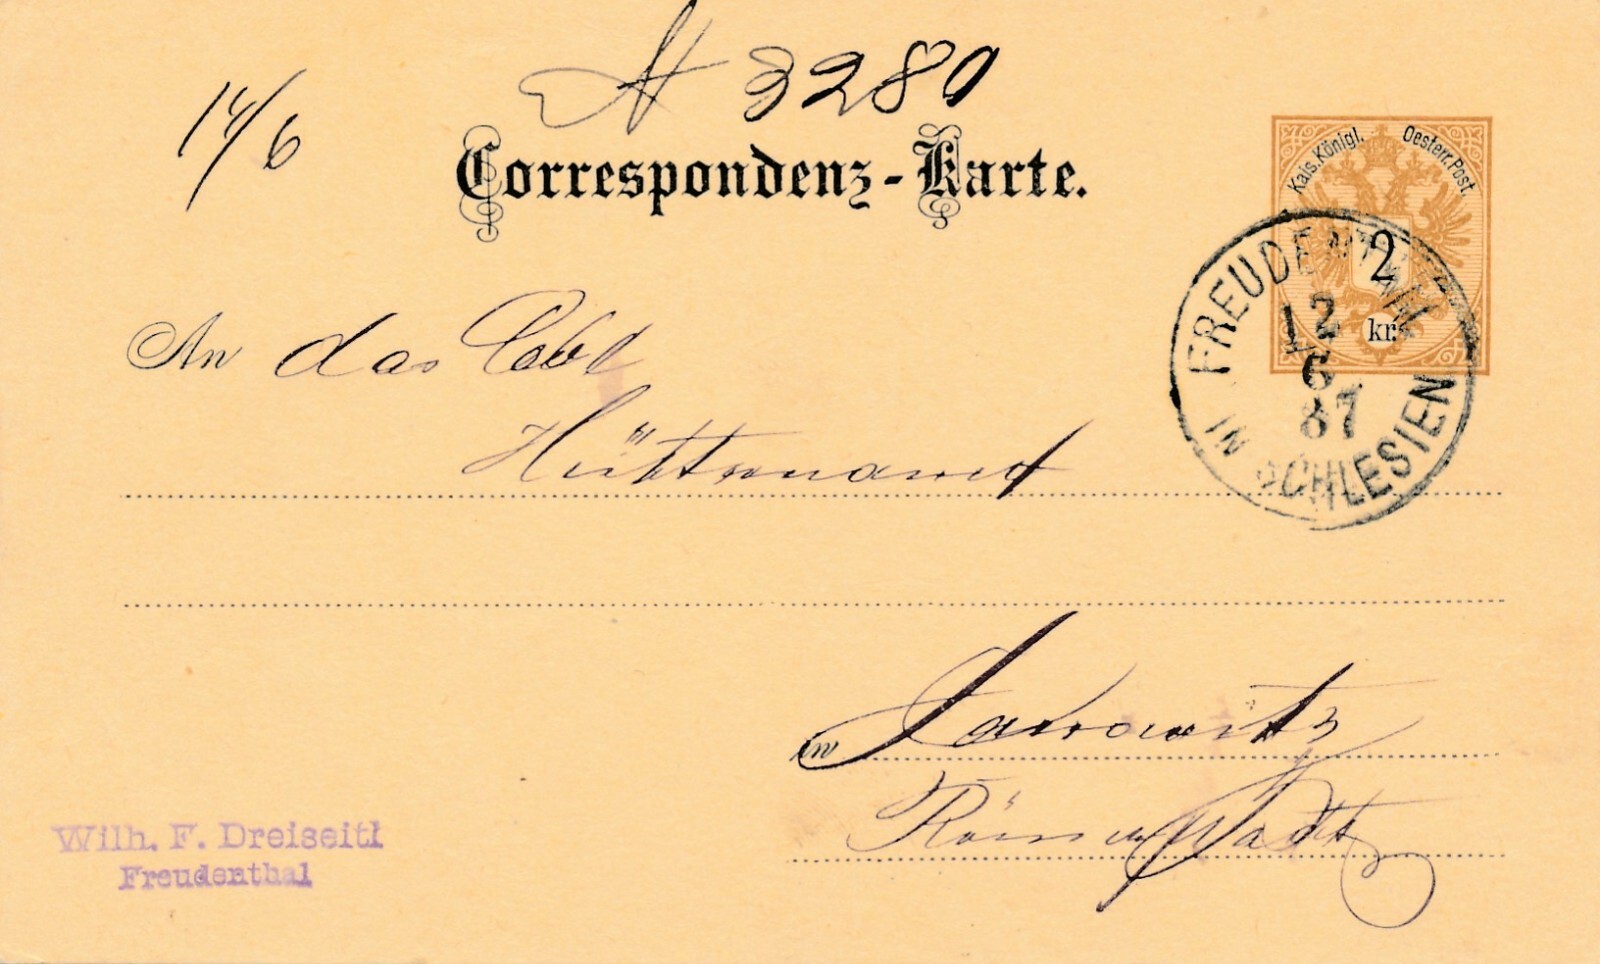 14/6
N 3280
Correspondenz-Karte.
Kais. Königl. Oesterr. Post.
2
kr.
FREUDENTHAL
12
6
87
IN SCHLESIEN
An das Löbl
Hüttenamt
in Janowitz
Römerstadt
Wilh. F. Dreiseitl
Freudenthal